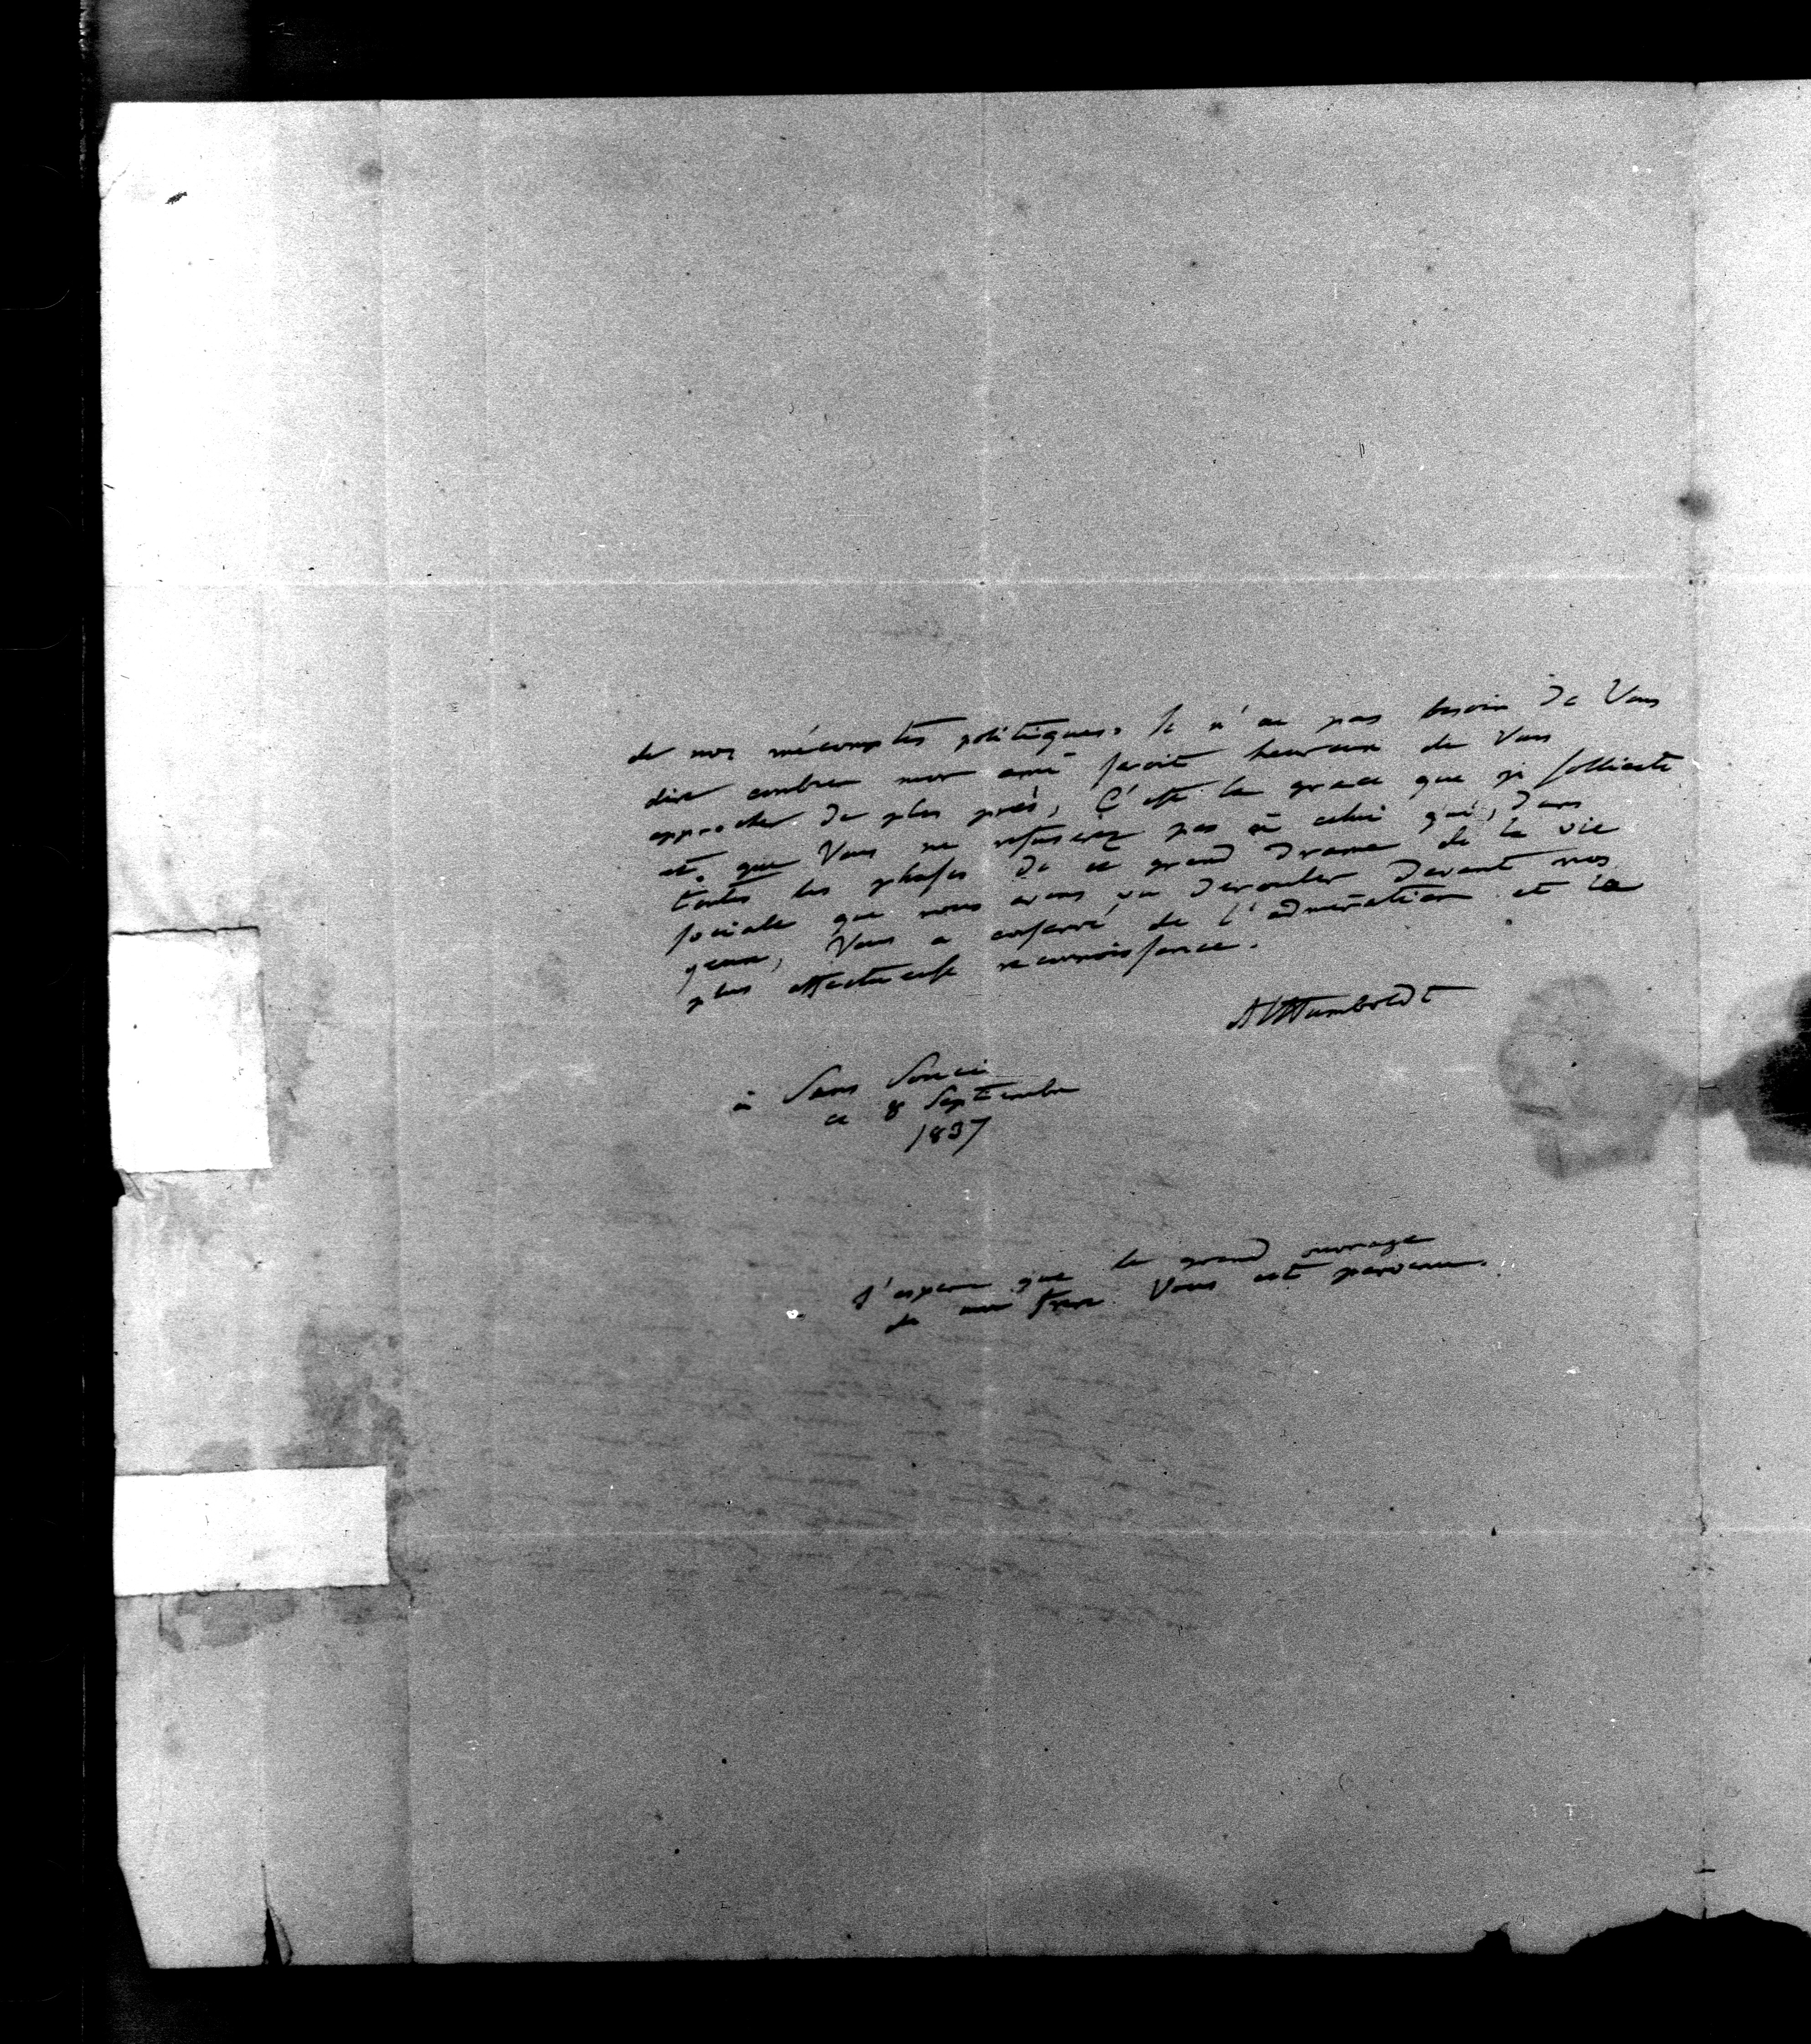 de nos mécomptes politiques. Je n'ai pas besoin de Vous
dire combien mon ami seroit heureux de Vous
approcher de plus près, C'est la grace que je sollicite
et que Vous ne refuserez pas à celui qui, dans
toutes les phases de ce grand drame de la vie
sociale que nous avons vu derouler devant nos
yeux, Vous a conservé de l'admiration et la
plus affectueuse reconnoissance.
AlHumboldt
à Sans Souci
ce 8 Septembre
1837
J'espere que le grand ouvrage
de mon frere Vous est parvenu.